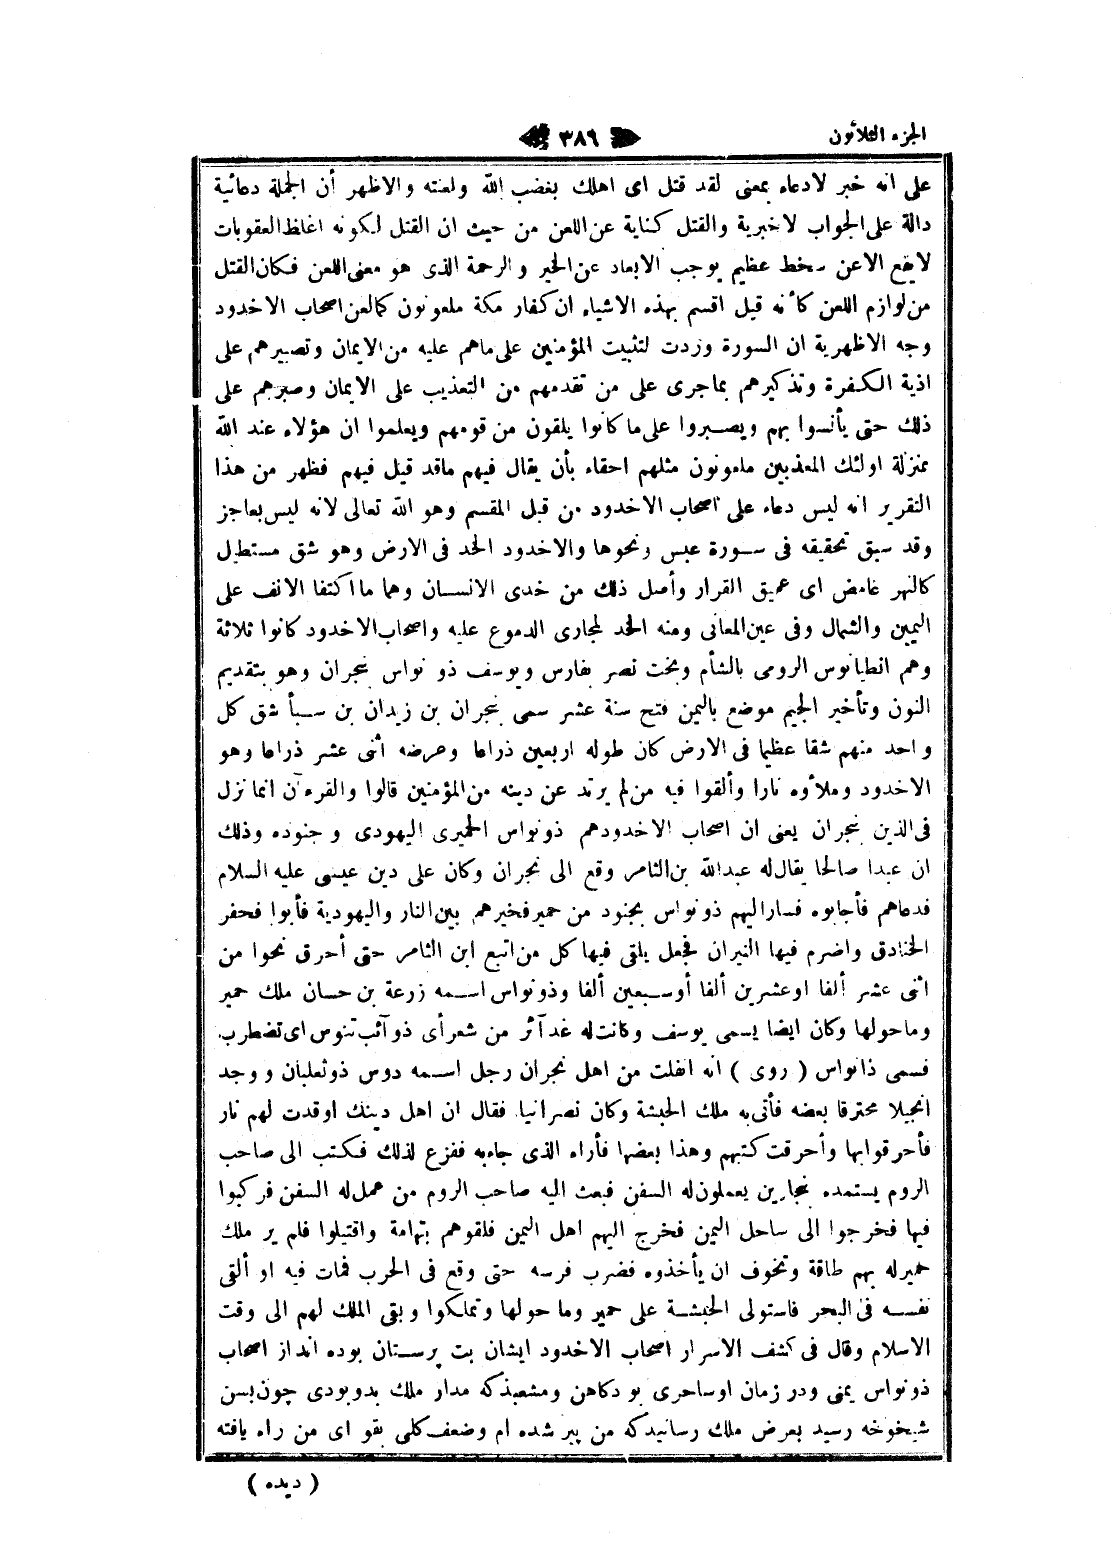 الجزء الثلاثون
٣٨٦
على انه خبر لادعاء بمعنى لقد قتل اى اهلك بغضب الله ولعنته والاظهر أن الجملة دعائية
دالة على الجواب لاخبرية والقتل كناية عن اللعن من حيث ان القتل لكونه اغلظ العقوبات
لايقع الاعن سخط عظيم يوجب الابعاد عن الخير والرحمة الذى هو معنى اللعن فكان القتل
من لوازم اللعن كأنه قيل اقسم بهذه الاشياء ان كفار مكة ملعونون كمالعن اصحاب الاخدود
وجه الاظهرية ان السورة وردت لتثبيت المؤمنين على ماهم عليه من الايمان وتصبيرهم على
اذية الكفرة وتذكيرهم بماجرى على من تقدمهم من التعذيب على الايمان وصبرهم على
ذلك حتى يأنسوا بهم ويصبروا على ما كانوا يلقون من قومهم ويعلموا ان هؤلاء عند الله
بمنزلة اولئك المعذبين ملعونون مثلهم احقاء بأن يقال فيهم ماقد قيل فيهم فظهر من هذا
التقرير انه ليس دعاء على اصحاب الاخدود من قبل المقسم وهو الله تعالى لانه ليس بعاجز
وقد سبق تحقيقه فى سورة عبس ونحوها والاخدود الخد فى الارض وهو شق مستطيل
كالنهر غامض اى عميق القرار وأصل ذلك من خدى الانسان وهما ما اكتفا الانف على
اليمين والشمال وفى عين المعانى ومنه الخد لمجارى الدموع عليه واصحاب الاخدود كانوا ثلاثة
وهم انطيانوس الرومى بالشأم وبخت نصر بفارس ويوسف ذو نواس بنجران وهو بتقديم
النون وتأخير الجيم موضع باليمن فتح سنة عشر سمى بنجران بن زيدان بن سبأ شق كل
واحد منهم شقا عظيما فى الارض كان طوله اربعين ذراعا وعرضه اثنى عشر ذراعا وهو
الاخدود وملأوه نارا وألقوا فيه من لم يرتد عن دينه من المؤمنين قالوا والقرءآن انما نزل
فى الذين بنجران يعنى ان اصحاب الاخدودهم ذونواس الحميرى اليهودى و جنوده وذلك
ان عبدا صالحا يقال له عبدالله بن الثامر وقع الى نجران وكان على دين عيسى عليه السلام
فدعاهم فأجابوه فسار اليهم ذونواس بجنود من حمير فخيرهم بين النار واليهودية فأبوا فحفر
الخنادق واضرم فيها النيران فجعل يلقى فيها كل من اتبع ابن الثامر حتى أحرق نحوا من
اثنى عشر ألفا اوعشرين ألفا أوسبعين ألفا وذونواس اسمه زرعة بن حسان ملك حمير
وماحولها وكان ايضا يسمى يوسف وكانت له غدآئر من شعر أى ذوآئب تنوس اى تضطرب
فسمى ذانواس ( روى ) انه انفلت من اهل نجران رجل اسمه دوس ذوثعلبان ووجد
انجيلا محترقا بعضه فأتى به ملك الحبشة وكان نصرانيا فقال ان اهل دينك اوقدت لهم نار
فأحرقوابها وأحرقت كتبهم وهذا بعضها فأراه الذى جاءبه ففزع لذلك فكتب الى صاحب
الروم يستمده بنجارين يعملون له السفن فبعث اليه صاحب الروم من عمل له السفن فركبوا
فيها فخرجوا الى ساحل اليمن فخرج اليهم اهل اليمن فلقوهم بتهامة واقتيلوا فلم ير ملك
حمير له بهم طاقة وتخوف ان يأخذوه فضرب فرسه حتى وقع فى الحرب فمات فيه او ألقى
نفسه فى البحر فاستولى الحبشة على حمير وما حولها وتملكوا وبقى الملك لهم الى وقت
الاسلام وقال فى كشف الاسرار اصحاب الاخدود ايشان بت پرستان بوده انداز اصحاب
ذونواس يمنى ودر زمان اوساحرى بود كاهن ومشعبذكه مدار ملك بدوبودى چون بسن
شيخوخه رسيد بعرض ملك رسانيدكه من پير شده ام وضعف كلى بقواى من راه يافته
( ديده )